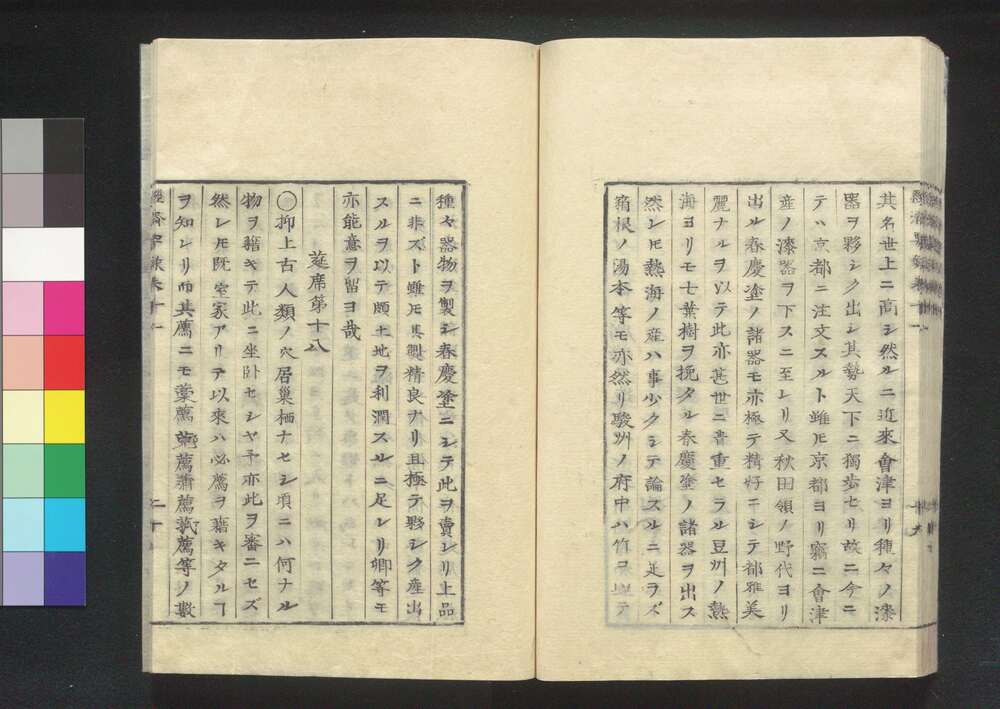 其名世上ニ高シ然ルニ近來會津ヨリ種々ノ漆
器ヲ夥シク出シ其勢天下ニ獨歩セリ故ニ今ニ
テハ京都ニ注文スルト雖𪜈京都ヨリ竊ニ會津
産ノ漆器ヲ下スニ至レリ又秋田領ノ野代ヨリ
出ル春慶塗ノ諸器モ亦極テ精好ニシテ都雅美
麗ナルヲ以テ此亦甚世ニ音重セラル豆州ノ熱
海ヨリモ七葉樹ヲ挽タル春慶塗ノ諸器ヲ出ス
然レ𪜈熱海ノ産ハ事少クシテ論スルニ足ラズ
箱根ノ湯本等モ亦然リ駿州ノ府中ハ竹ヲ以テ
種々器物ヲ製シ春慶塗ニシテ此ヲ賣レリ上品
ニ非ズト雖𪜈其製精良ナリ且極テ夥シク産出
スルヲ以テ頗土地ヲ利潤スルニ足レリ卿等モ
亦能意ヲ留ヨ哉
莚席第十八
〇抑上古人類ノ穴居巣栖ナセシ頃ニハ何ナル
物ヲ籍キテ此ニ坐卧セシヤ予亦此ヲ審ニセズ
然レ𪜈既室家アリテ以來ハ必薦ヲ藉キタルヿ
ヲ知レリ而其薦ニモ藁薦 薦蒲薦 薦等ノ數